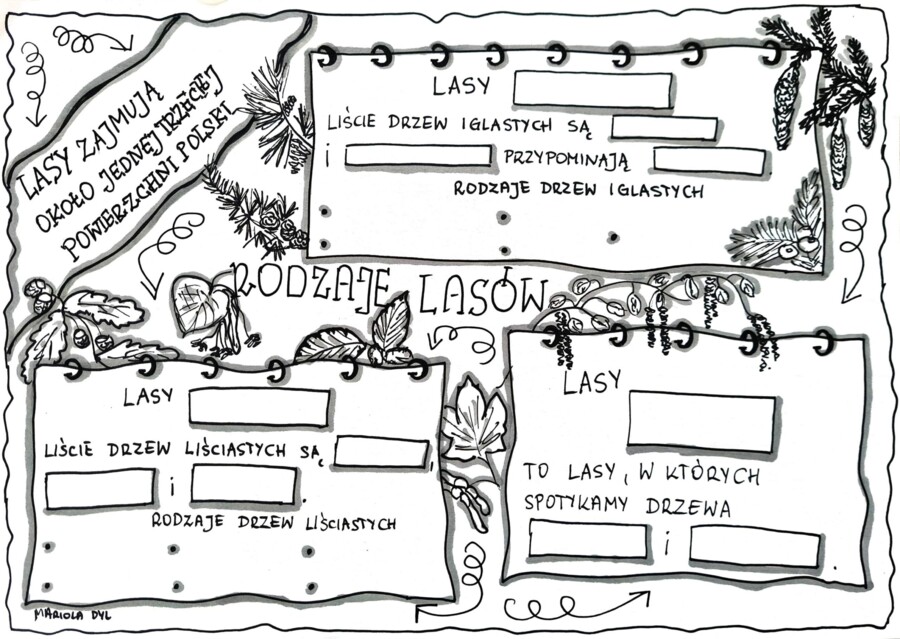 LASY ZAJMUJĄ
OKOŁO JEDNEJ TRZECIEJ
POWIERZCHNI POLSKI
LASY
LIŚCIE DRZEW IGLASTYCH SĄ
i PRZYPOMINAJĄ
RODZAJE DRZEW IGLASTYCH
RODZAJE LASÓW
LASY
LIŚCIE DRZEW LIŚCIASTYCH SĄ ,
i .
RODZAJE DRZEW LIŚCIASTYCH
LASY
TO LASY, W KTÓRYCH
SPOTYKAMY DRZEWA
i .
MARIOLA DYL